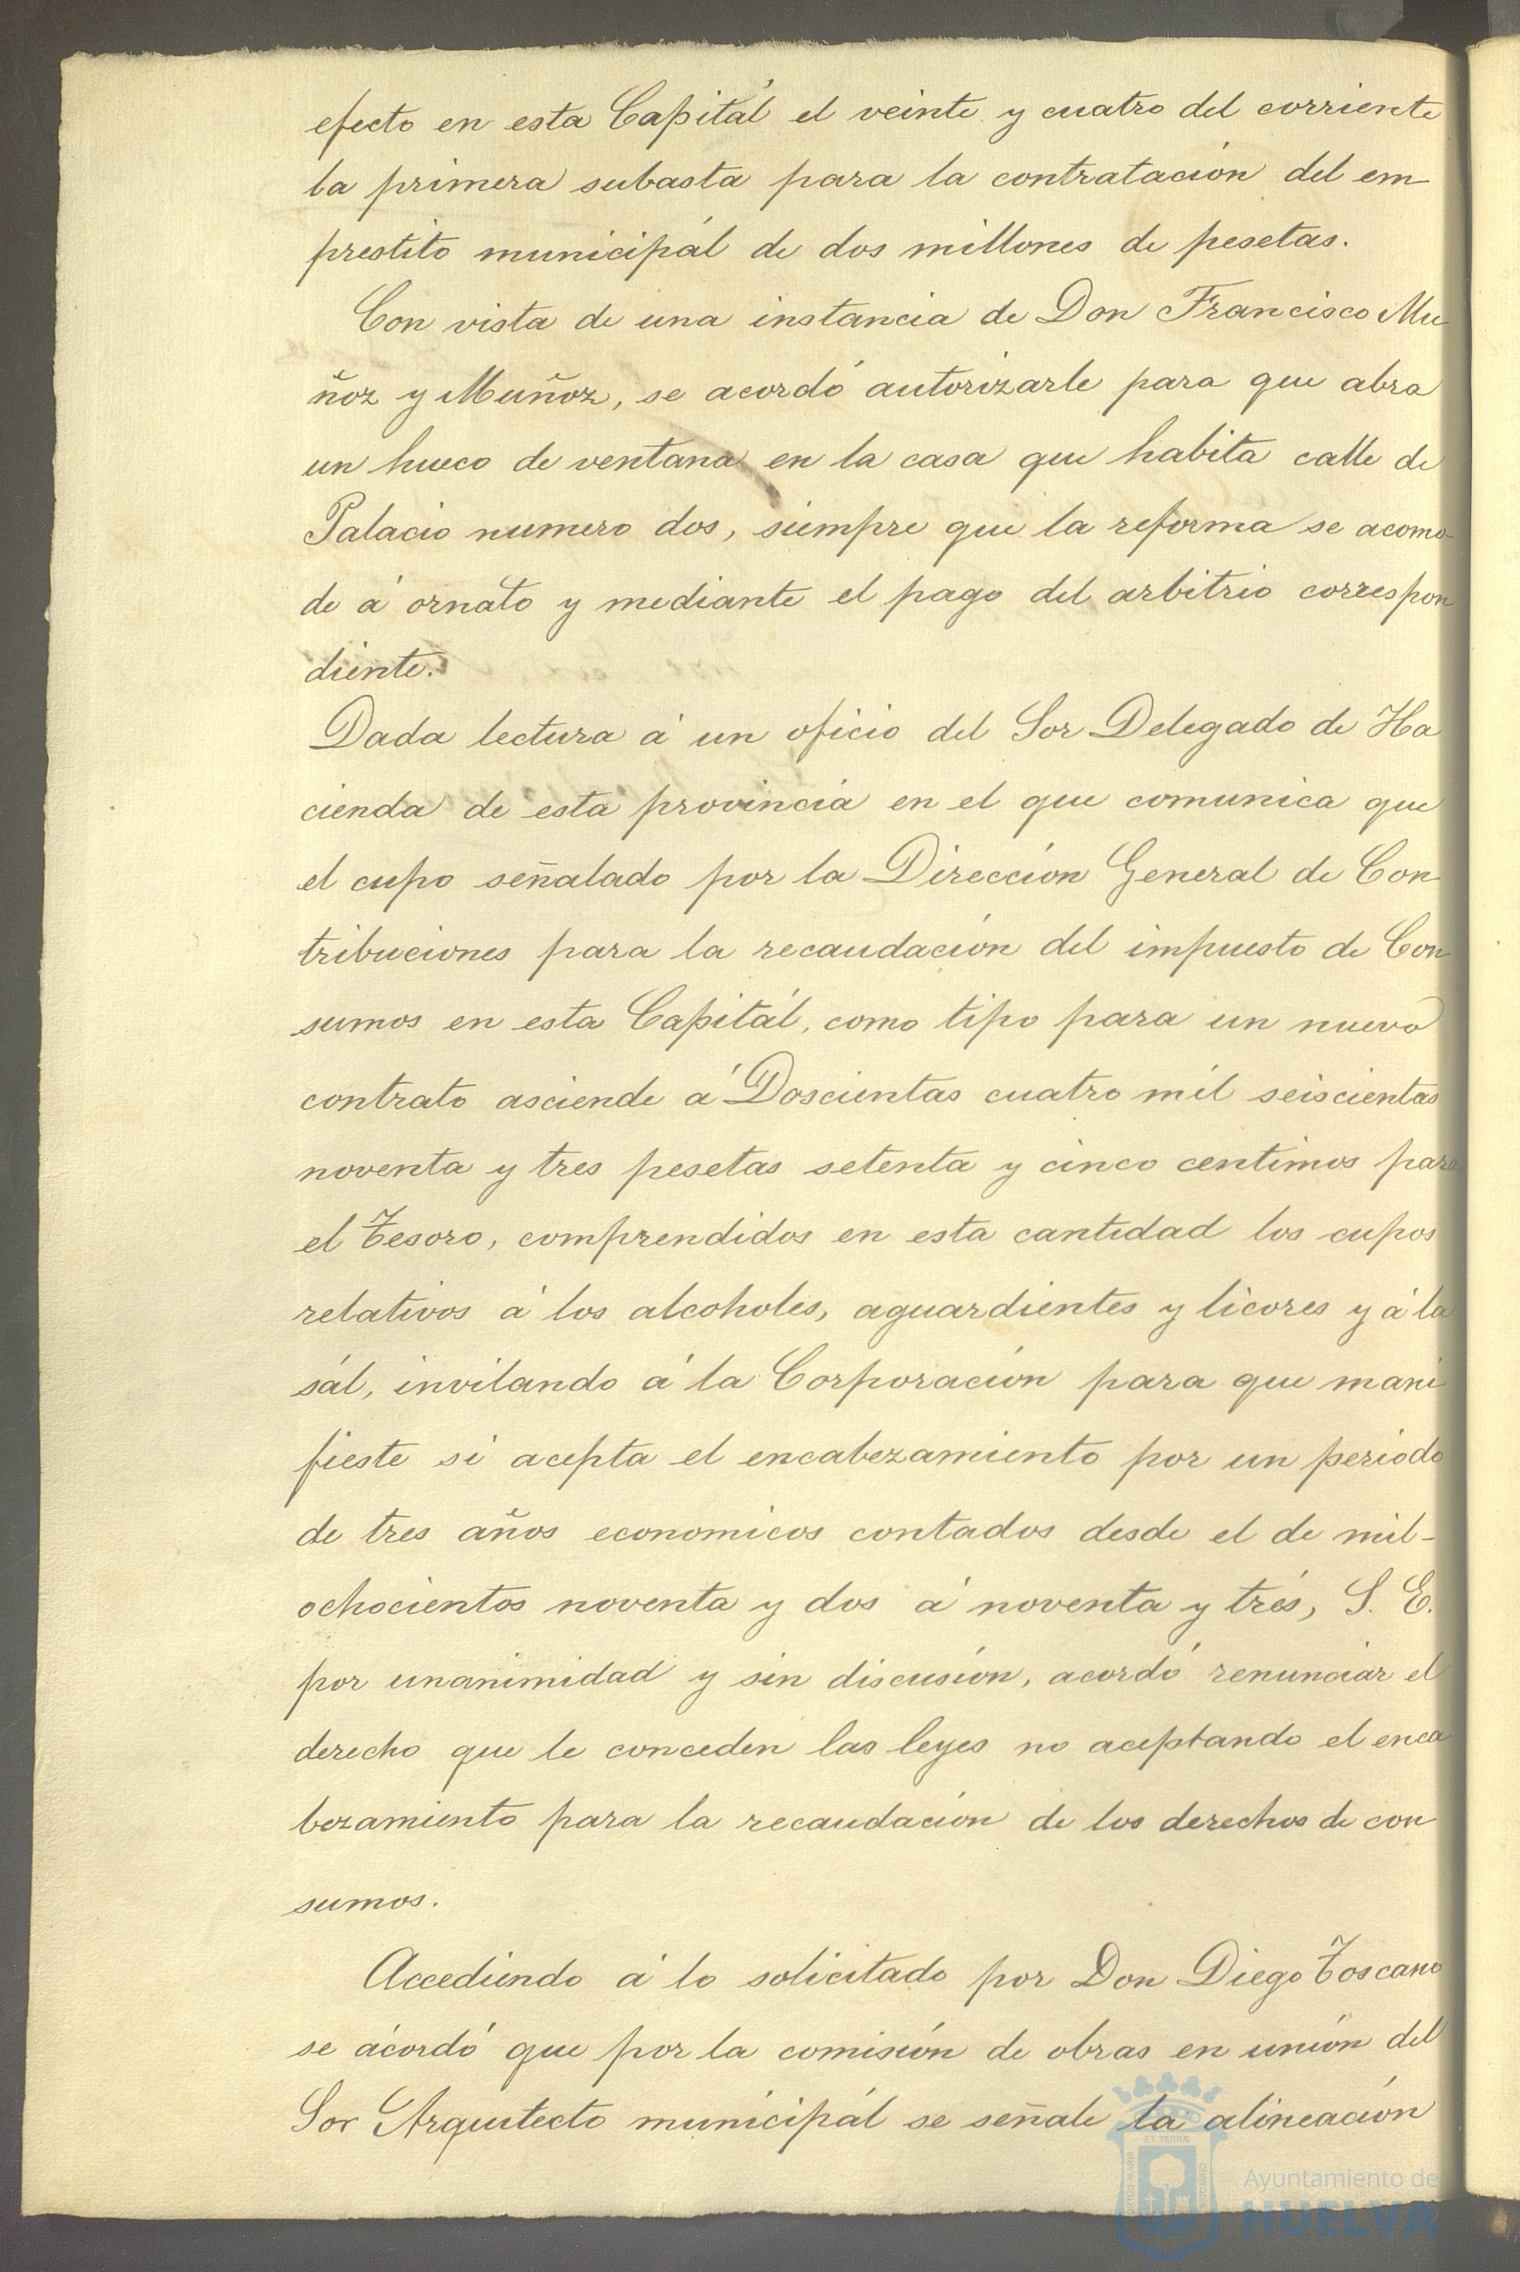 efecto en esta Capitál el veinte y cuatro del corriente
la primera subasta para la contratación del em
prestito municipál de dos millones de pesetas.
Con vista de una instancia de Don Francisco Mu
ñoz y Muñoz, se acordó autorizarle para que abra
un hueco de ventana en la casa que habita calle de
Palacio numero dos, siempre que la reforma se acomo-
de á ornato y mediante el pago del arbitrio correspon
diente.
Dada lectura á un oficio del Sor Delegado de Ha
cienda de esta provincia en el que comunica que
el cupo señalado por la Dirección General de Con
tribuciones para la recaudación del impuesto de Con
sumos en esta Capitál, como tipo para un nuevo
contrato asciende á Doscientas cuatro mil seiscientas
noventa y tres pesetas setenta y cinco centimos para
el Tesoro, comprendidos en esta cantidad los cupos
relativos á los alcoholes, aguardientes y licores y á la
sál, invitando á la Corporación para que mani
fieste si acepta el encabezamiento por un periodo
de tres años economicos contados desde el de mil-
ochocientos noventa y dos á noventa y trés, S. E.
por unanimidad y sin discusión, acordó renunciar el
derecho que le conceden las leyes no aceptando el enca
bezamiento para la recaudación de los derechos de con
sumos.
Accediendo á lo solicitado por Don Diego Toscano
se ácordó que por la comisión de obras en unión del
Sor Arquitecto municipál se señale la alineación
Ayuntamiento de
HUELVA